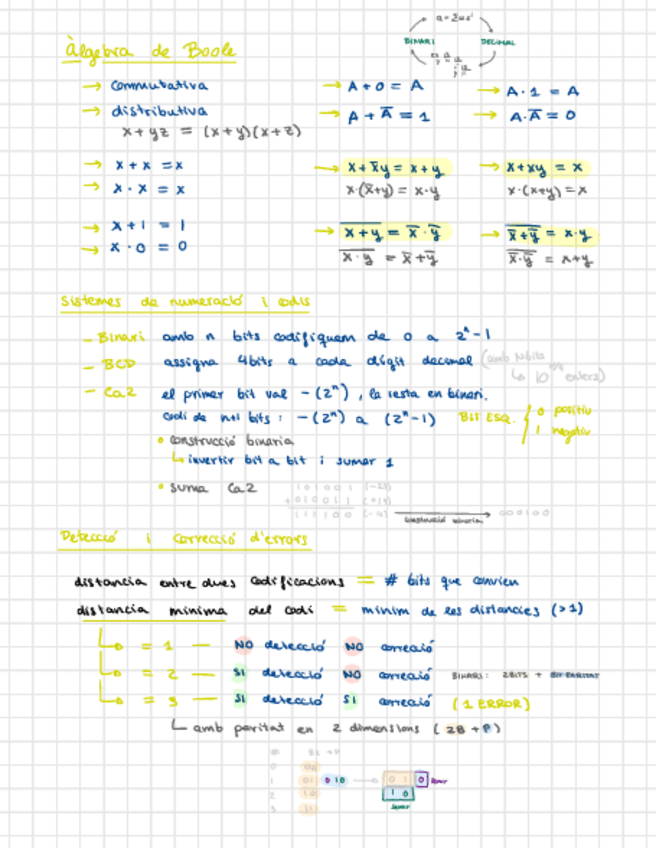 Àlgebra de Boole
BINARI DECIMAL
→ commutativa → A + 0 = A → A · 1 = A
→ distributiva → A + A̅ = 1 → A · A̅ = 0
x + yz = (x+y)(x+z)
→ x + x = x → x + x̅y = x + y → x + xy = x
→ x · x = x x·(x̅+y) = x·y x·(x+y) = x
→ x + 1 = 1 → \overline{x + y} = x̅ · y̅ → \overline{x̅ + y̅} = x · y
→ x · 0 = 0 \overline{x · y} = x̅ + y̅ \overline{x̅ · y̅} = x + y
Sistemes de numeració i codis
– Binari amb n bits codifiquem de 0 a 2ⁿ-1
– BCD assigna 4bits a cada dígit decimal (amb Nbits
enters)
– Ca2 el primer bit val -(2ⁿ), la resta en binari.
Codi de n+1 bits: -(2ⁿ) a (2ⁿ-1) BIT ESQ. 0 positiu
1 negatiu
• construcció binaria
↳ invertir bit a bit i sumar 1
• suma Ca2 101001 (-23)
+010011 (+19)
111100 (-4) construcció binaria 000100
Detecció i correcció d'errors
distancia entre dues codificacions = # bits que canvien
distancia minima del codi = minim de les distancies (>1)
↳ = 1 — NO detecció NO correció
↳ = 2 — SI detecció NO correció BINARI: 2BITS + BIT PARITAT
↳ = 3 — SI detecció SI correció (1 ERROR)
↳ amb paritat en 2 dimensions (2B + P)
0
1 01 0 1 0 → 0 1 0
2 10 1 0
3 11